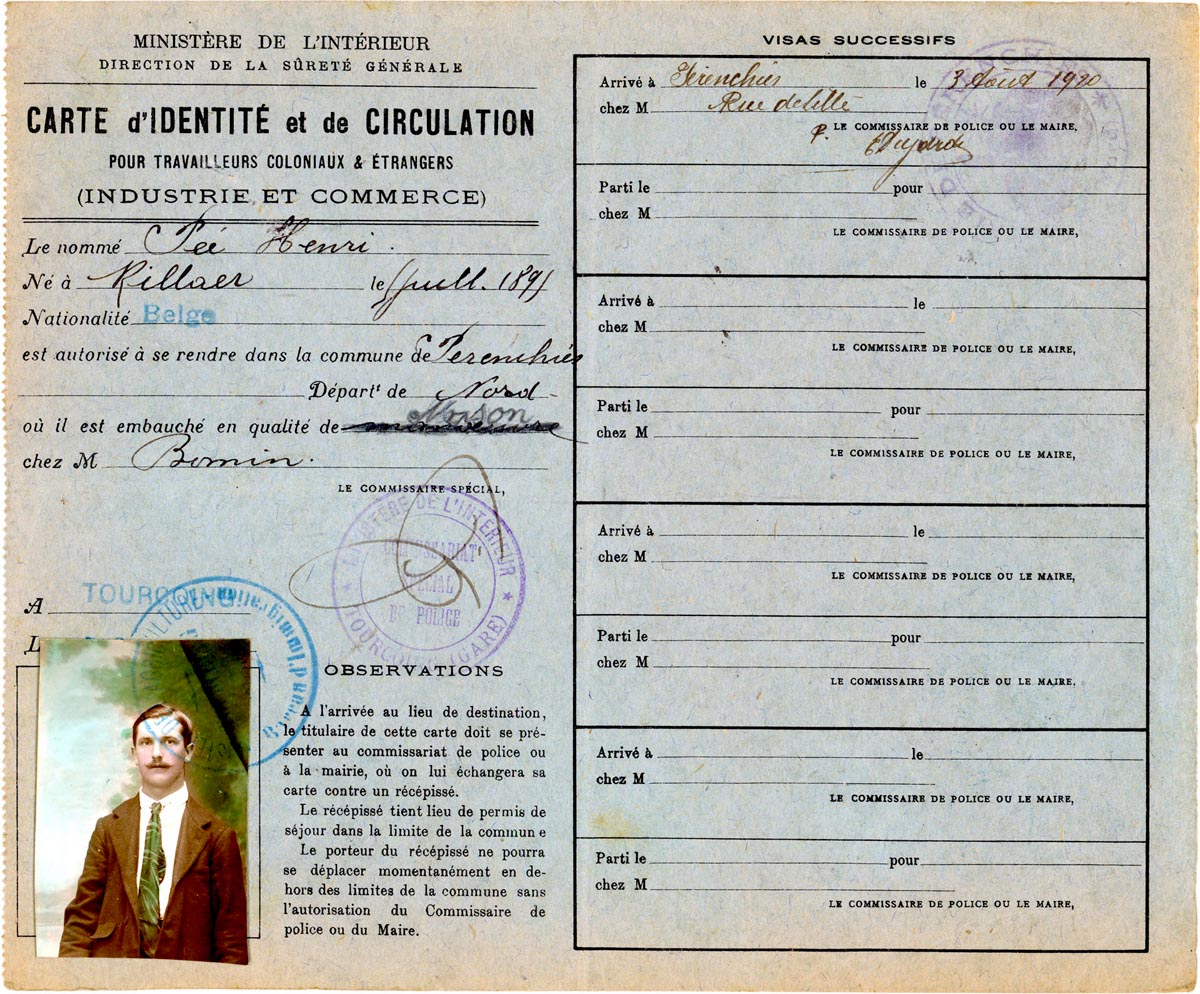 MINISTÈRE DE L'INTÉRIEUR
DIRECTION DE LA SÛRETÉ GÉNÉRALE
CARTE d'IDENTITÉ et de CIRCULATION
POUR TRAVAILLEURS COLONIAUX & ÉTRANGERS
(INDUSTRIE ET COMMERCE)
Le nommé Peé Henri.
Né à Rillaer le Juill. 1891
Nationalité Belge
est autorisé à se rendre dans la commune de Perenchies
Départ^t de Nord
où il est embauché en qualité de Mason
chez M Bomin.
LE COMMISSAIRE SPÉCIAL,
MINISTÈRE DE L'INTÉRIEUR
COMMISSARIAT
SPÉCIAL
DE POLICE
TOURCOING (GARE)
A TOURCOING
Bureau d'Immigration
OBSERVATIONS
A l'arrivée au lieu de destination,
le titulaire de cette carte doit se pré-
senter au commissariat de police ou
à la mairie, où on lui échangera sa
carte contre un récépissé.
Le récépissé tient lieu de permis de
séjour dans la limite de la commune
Le porteur du récépissé ne pourra
se déplacer momentanément en de-
hors des limites de la commune sans
l'autorisation du Commissaire de
police ou du Maire.
VISAS SUCCESSIFS
Arrivé à Perenchies le 3 Août 1920
chez M Rue de Lille
P. LE COMMISSAIRE DE POLICE OU LE MAIRE,
Parti le pour
chez M
LE COMMISSAIRE DE POLICE OU LE MAIRE,
Arrivé à le
chez M
LE COMMISSAIRE DE POLICE OU LE MAIRE,
Parti le pour
chez M
LE COMMISSAIRE DE POLICE OU LE MAIRE,
Arrivé à le
chez M
LE COMMISSAIRE DE POLICE OU LE MAIRE,
Parti le pour
chez M
LE COMMISSAIRE DE POLICE OU LE MAIRE.
Arrivé à le
chez M
LE COMMISSAIRE DE POLICE OU LE MAIRE,
Parti le pour
chez M
LE COMMISSAIRE DE POLICE OU LE MAIRE,